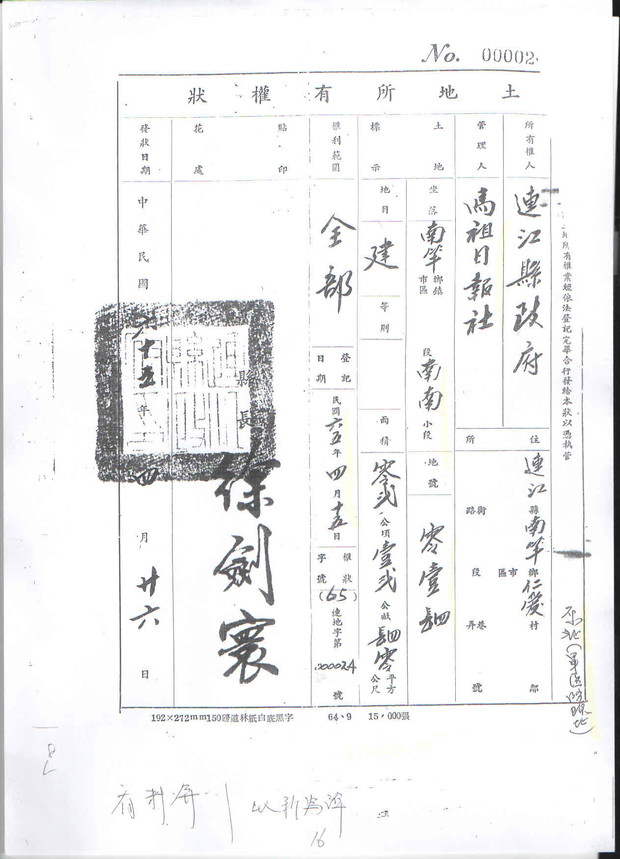 No. 00002
土地所有權狀
所有權人 連江縣政府
住所 連江縣南竿鄉市區仁愛村 街路 段 巷弄 號
管理人 馬祖日報社
土地標示
坐落 南竿鄉鎮市區 段 南南 小段 地號 零壹肆
地目 建 等則 面積 零弍公頃壹弍公畝肆零平方公尺
權利範圍 全部
登記日期 民國六五年四月十五日
權狀字號 (65)連地字第000024號
貼印花處
縣長 徐劍寰
發狀日期 中華民國六十五年四月廿六日
192×272mm150磅道林紙白底黑字 64.9 15,000張
16